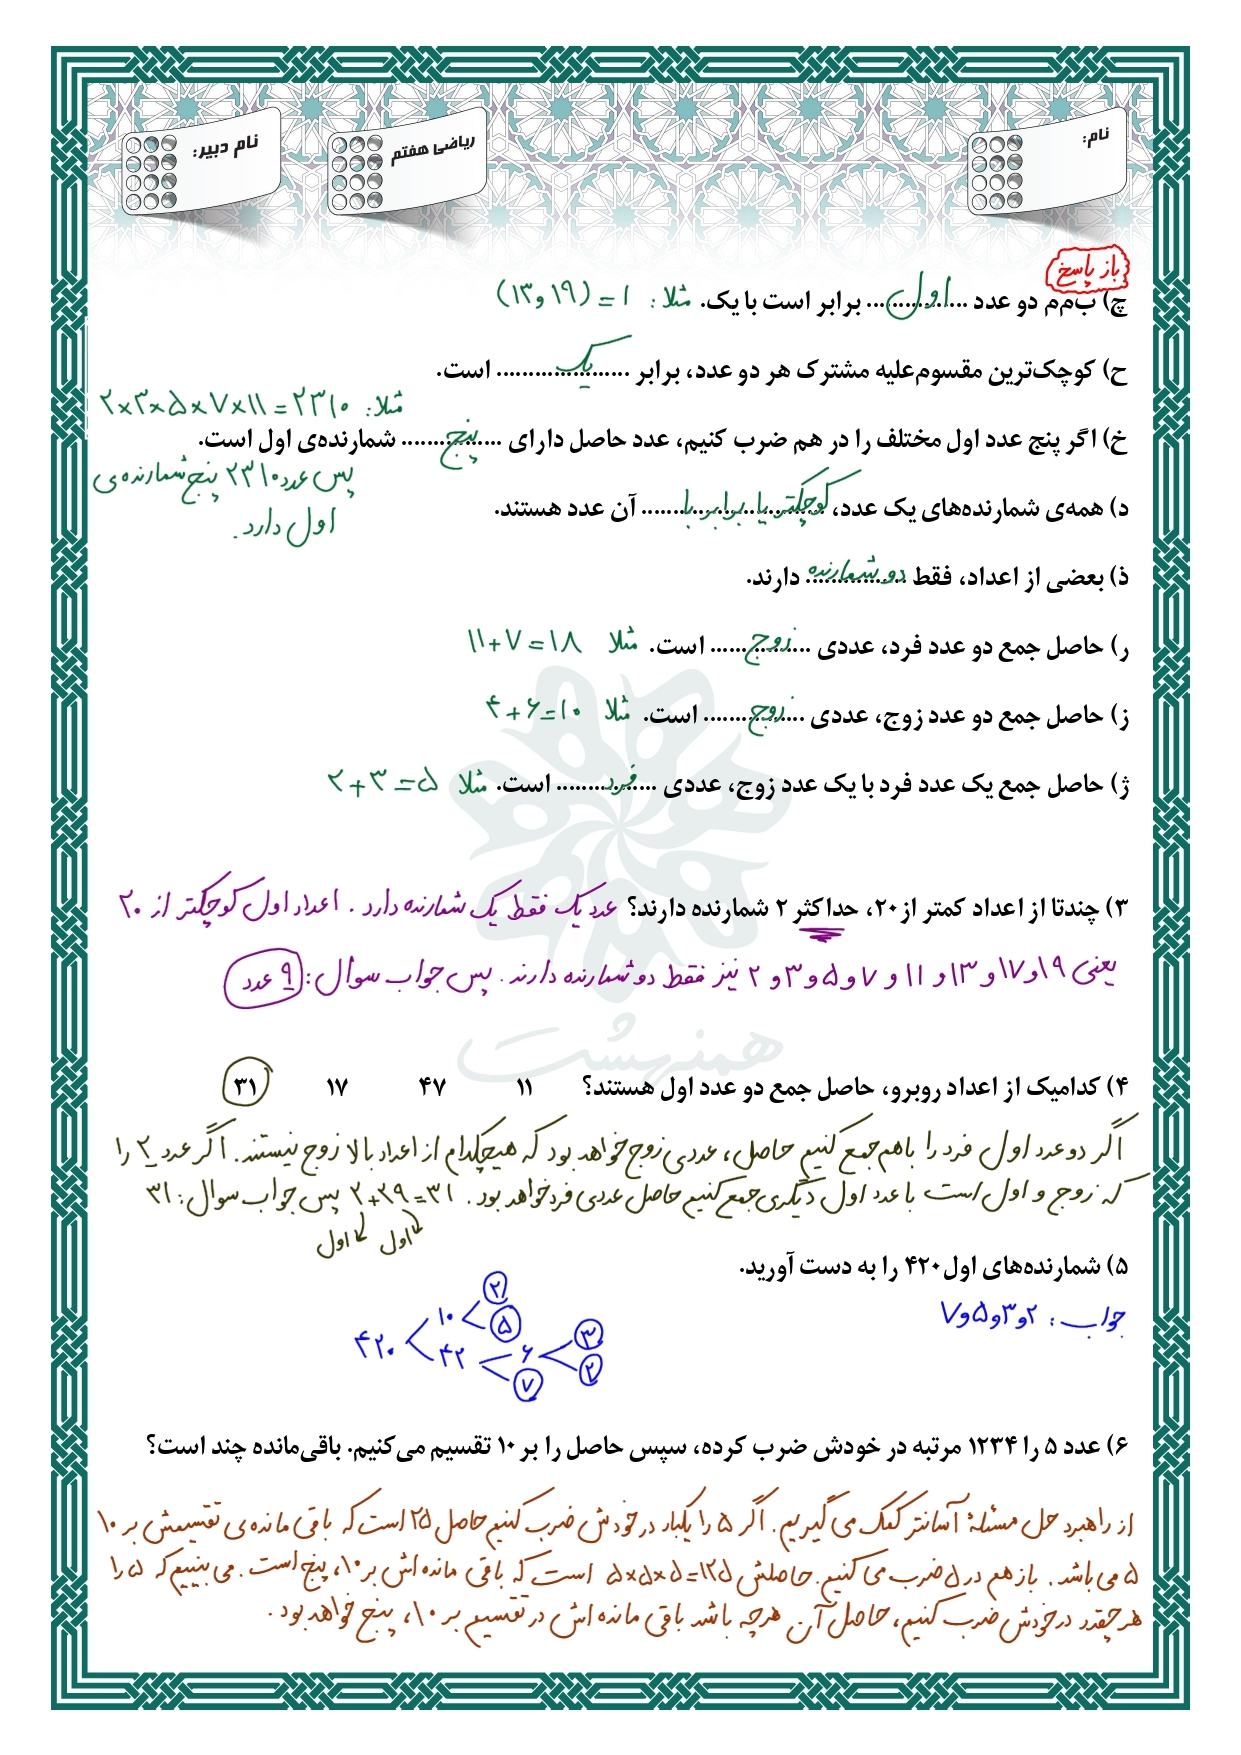 نام:
ریاضی هفتم
نام دبیر:
باز پاسخ
چ) ب‌م‌م دو عدد ....اول.... برابر است با یک. مثلا : ۱ = (۱۳ و ۱۹)
ح) کوچک‌ترین مقسوم‌علیه مشترک هر دو عدد، برابر ....یک.... است.
مثلا: ۲×۳×۵×۷×۱۱=۲۳۱۰
خ) اگر پنج عدد اول مختلف را در هم ضرب کنیم، عدد حاصل دارای ....پنج.... شمارنده‌ی اول است.
پس عدد ۲۳۱۰ پنج شمارنده‌ی
اول دارد.
د) همه‌ی شمارنده‌های یک عدد، ....کوچکتر یا برابر با.... آن عدد هستند.
ذ) بعضی از اعداد، فقط ....دو شمارنده.... دارند.
ر) حاصل جمع دو عدد فرد، عددی ....زوج.... است. مثلا ۱۱+۷=۱۸
ز) حاصل جمع دو عدد زوج، عددی ....زوج.... است. مثلا ۴+۶=۱۰
ژ) حاصل جمع یک عدد فرد با یک عدد زوج، عددی ....فرد.... است. مثلا ۲+۳=۵
۳) چندتا از اعداد کمتر از ۲۰، حداکثر ۲ شمارنده دارند؟ عدد یک فقط یک شمارنده دارد . اعداد اول کوچکتر از ۲۰
یعنی ۱۹ و ۱۷ و ۱۳ و ۱۱ و ۷ و ۵ و ۳ و ۲ نیز فقط دو شمارنده دارند . پس جواب سوال : ۹ عدد
همنهشت
۴) کدامیک از اعداد روبرو، حاصل جمع دو عدد اول هستند؟ ۱۱ ۴۷ ۱۷ ۳۱
اگر دو عدد اول فرد را باهم جمع کنیم حاصل، عددی زوج خواهد بود که هیچکدام از اعداد بالا زوج نیستند. اگر عدد ۲ را
که زوج و اول است با عدد اول دیگری جمع کنیم حاصل عددی فرد خواهد بود . ۲+۲۹=۳۱ پس جواب سوال : ۳۱
اول اول
۵) شمارنده‌های اول ۴۲۰ را به دست آورید.
جواب : ۲ و ۳ و ۵ و ۷
۴۲۰ ۱۰ ۲ ۵
۴۲ ۶ ۳ ۲
۷
۶) عدد ۵ را ۱۲۳۴ مرتبه در خودش ضرب کرده، سپس حاصل را بر ۱۰ تقسیم می‌کنیم. باقی‌مانده چند است؟
از راهبرد حل مسئلهٔ آسانتر کمک می گیریم. اگر ۵ را یکبار در خودش ضرب کنیم حاصل ۲۵ است که باقی مانده‌ی تقسیمش بر ۱۰
۵ می باشد . باز هم در ۵ ضرب می کنیم. حاصلش ۱۲۵=۵×۵×۵ است که باقی مانده اش بر ۱۰، پنج است . می بینیم که ۵ را
هر چقدر در خودش ضرب کنیم، حاصل آن هرچه باشد باقی مانده اش در تقسیم بر ۱۰، پنج خواهد بود .